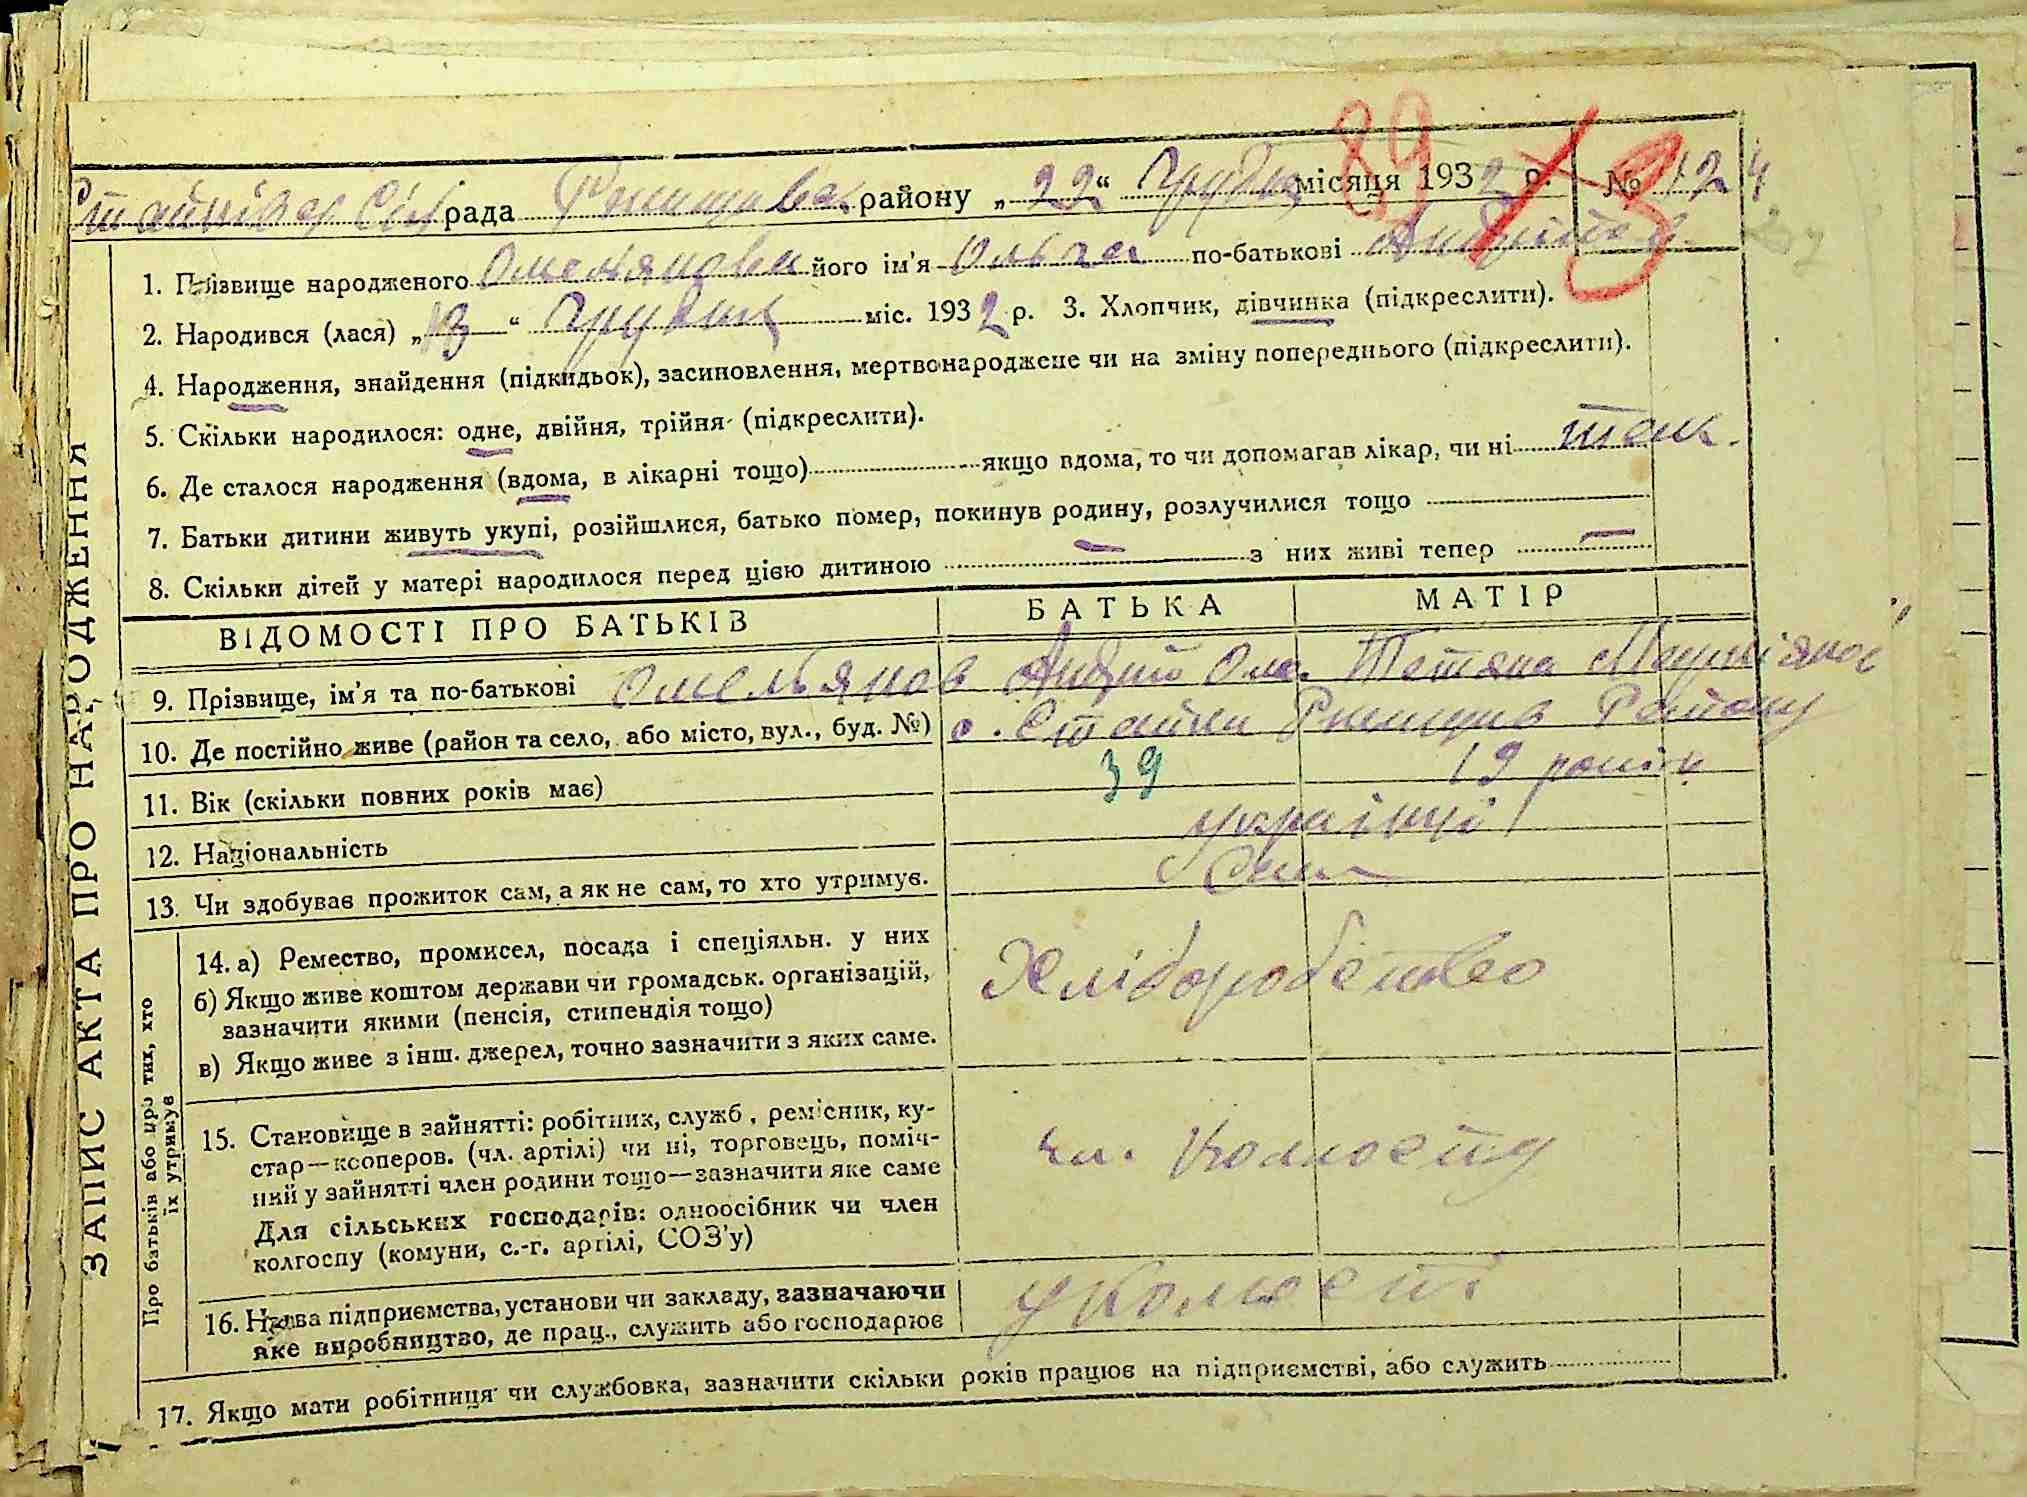 ЗАПИС АКТА ПРО НАРОДЖЕННЯ
89
Стайків Сіл рада Ржищивск району „22“ Грудня місяця 1932 р. № 124
1. Прізвище народженого Омельянова його ім'я Ольга по-батькові Андріїв.
2. Народився (лася) „13“ Грудня міс. 1932 р. 3. Хлопчик, дівчинка (підкреслити).
4. Народження, знайдення (підкидьок), засиновлення, мертвонароджене чи на зміну попереднього (підкреслити).
5. Скільки народилося: одне, двійня, трійня (підкреслити).
6. Де сталося народження (вдома, в лікарні тощо) якщо вдома, то чи допомагав лікар, чи ні так.
7. Батьки дитини живуть укупі, розійшлися, батько помер, покинув родину, розлучилися тощо
8. Скільки дітей у матері народилося перед цією дитиною — з них живі тепер —
ВІДОМОСТІ ПРО БАТЬКІВ БАТЬКА МАТІР
9. Прізвище, ім'я та по-батькові Омельянов Андрій Оме. Тетяна
10. Де постійно живе (район та село, або місто, вул., буд. №) с. Стайки Ржищив Району
11. Вік (скільки повних років має) 39 19 років
12. Національність українці
13. Чи здобуває прожиток сам, а як не сам, то хто утримує. Сам
Про батьків або про тих, хто їх утримує
14. а) Ремество, промисел, посада і спеціяльн. у них
б) Якщо живе коштом держави чи громадськ. організацій,
зазначити якими (пенсія, стипендія тощо)
в) Якщо живе з інш. джерел, точно зазначити з яких саме.
Хліборобство
15. Становище в зайнятті: робітник, служб., ремісник, ку-
стар—кооперов. (чл. артілі) чи ні, торговець, поміч-
ний у зайнятті член родини тощо—зазначити яке саме
Для сільських господарів: одноосібник чи член
колгоспу (комуни, с.-г. артілі, СОЗ'у)
чл. Колгоспу
16. Назва підприємства, установи чи закладу, зазначаючи
яке виробництво, де прац., служить або господарює
у Колгосп.
17. Якщо мати робітниця чи службовка, зазначити скільки років працює на підприємстві, або служить